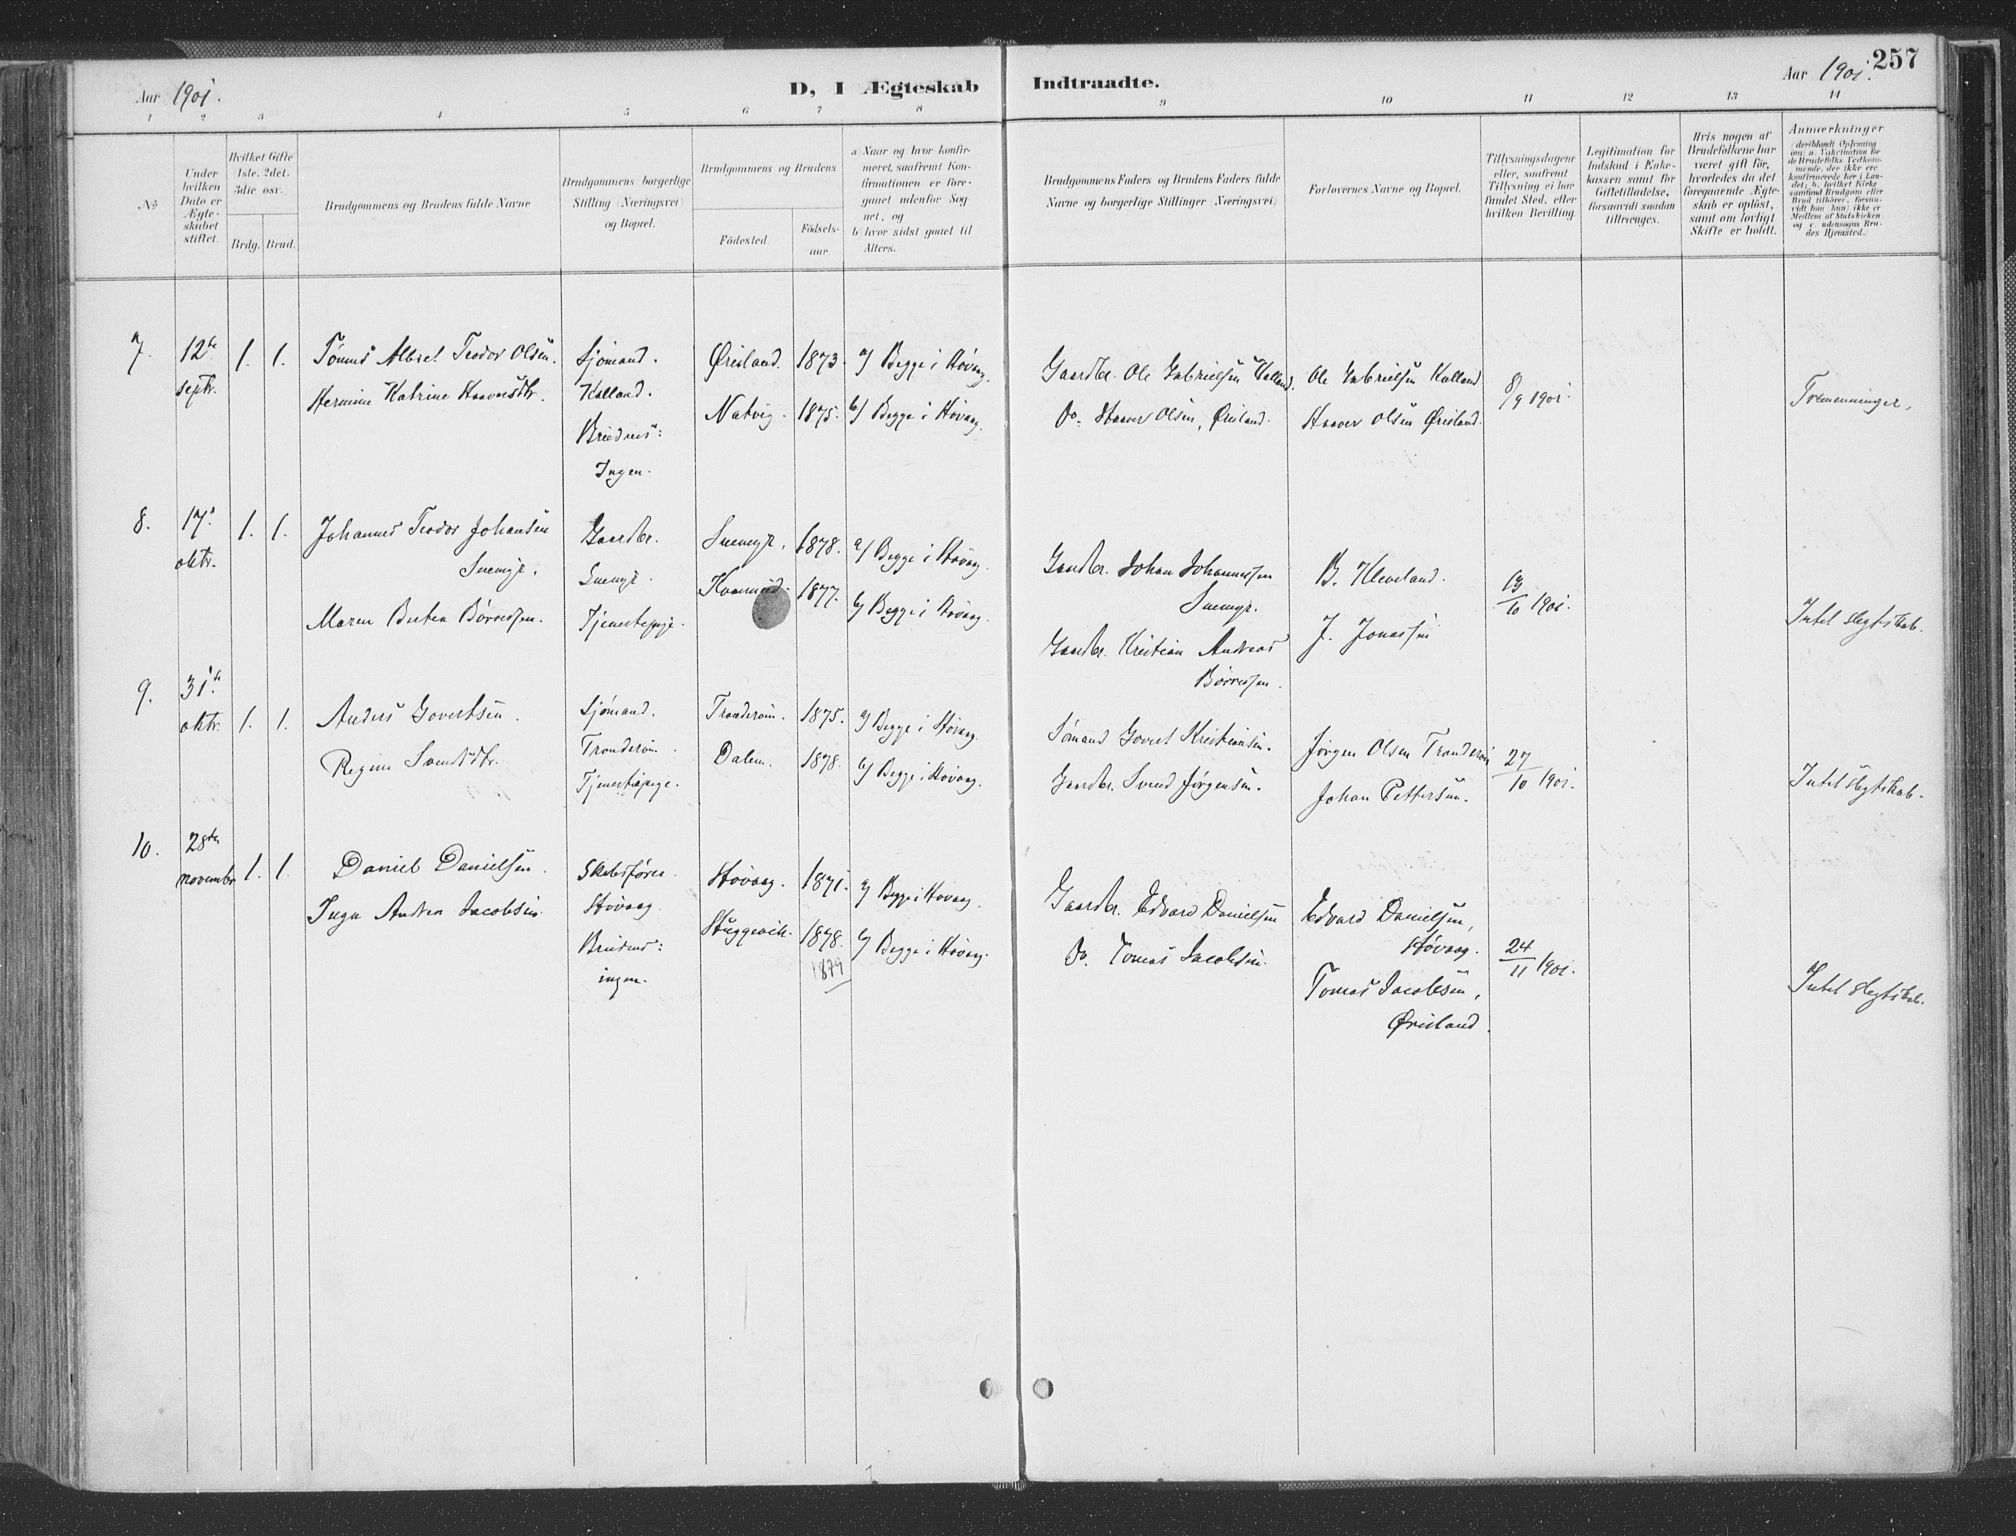 257
Aar 1901.
D, I Ægteskab Indtraadte.
Aar 1901.
1 2 3 4 5 6 7 8 9 10 11 12 13 14
No
Under hvilken Dato er Ægteskabet stiftet.
Hvilket Gifte 1ste, 2det, 3die osv.
Brdg. Brud.
Brudgommens og Brudens fulde Navne
Brudgommens borgerlige Stilling (Næringsvei) og Bopæl.
Brudgommens og Brudens
Födested.
Födselsaar
a Naar og hvor konfirmeret, saafremt Konfirmationen er foregaaet udenfor Sognet, og
b hvor sidst gaaet til Alters.
Brudgommens Faders og Brudens Faders fulde Navne og borgerlige Stillinger (Næringsvei)
Forlovernes Navne og Bopæl.
Tillysningsdagene eller, saafremt Tillysning ei har fundet Sted, efter hvilken Bevilling.
Legitimation for Indskud i Enkekassen samt for Giftetilladelse, forsaavidt saadan tiltrænges.
Hvis nogen af Brudefolkene har været gift för, hvorledes da det foregaaende Ægteskab er oplöst, samt om lovligt Skifte er holdt.
Anmærkninger
(deriblandt Oplysning om: a. Vakcination for de Brudefolks Vedkommende, der ikke ere konfirmerede her i Landet; b. hvilket Kirkesamfund Brudgom eller Brud tilhörer, forsaavidt han (hun) ikke er Medlem af Statskirken, og c. udensogns Brudes Hjemsted.
7. 12te septr. 1. 1.
Tønnes Albret Teodor Olsen.
Hermine Katrine Haaversdtr.
Sjømand.
Kalland.
Brudens:
Ingen.
Øresland. 1873.
Natvig. 1875.
a/ Begge i Høvaag.
b/ Begge i Høvaag.
Gaardbr. Ole Gabrielsen Kalland.
Do. Haaver Olsen, Øresland.
Ole Gabrielsen Kalland
Haaver Olsen Øresland.
8/9 1901.
Tremenninger.
8. 17. oktr. 1. 1.
Johannes Teodor Johansen
Snemyr.
Maren Bertea Börresen.
Gaardbr.
Snemyr.
Tjenestepige.
Snemyr. 1878.
1877.
a/ Begge i Høvaag.
b/ Begge i Høvaag.
Gaardbr. Johan Johannessen
Snemyr.
Gaardbr. Kristian Andreas
Börresen.
B. Kleveland.
J. Jonassen
13/10 1901.
Intet slegtskab.
9. 31te oktr. 1. 1.
Anders Govertsen.
Regine Svendsdtr.
Sjømand.
Tronderøen.
Tjenestepige.
Tronderøen. 1875.
Dalen. 1878.
a/ Begge i Høvaag.
b/ Begge i Høvaag.
Sømand Govert Kristensen.
Gaardbr. Svend Jørgensen.
Jørgen Olsen Tronderøen
Johan Pettersen.
27/10 1901.
Intet slegtskab.
10. 28de november 1. 1.
Daniel Danielsen.
Inga Andrea Jacobsen.
Skibsfører.
Høvaag.
Brudens:
ingen.
Høvaag. 1871.
Skuggevik. 1878.
1879
a/ Begge i Høvaag.
b/ Begge i Høvaag.
Gaardbr. Edvard Danielsen
Do. Tomas Jacobsen.
Edvard Danielsen,
Høvaag.
Tomas Jacobsen,
Øresland.
24/11 1901.
Intet slegtskab.